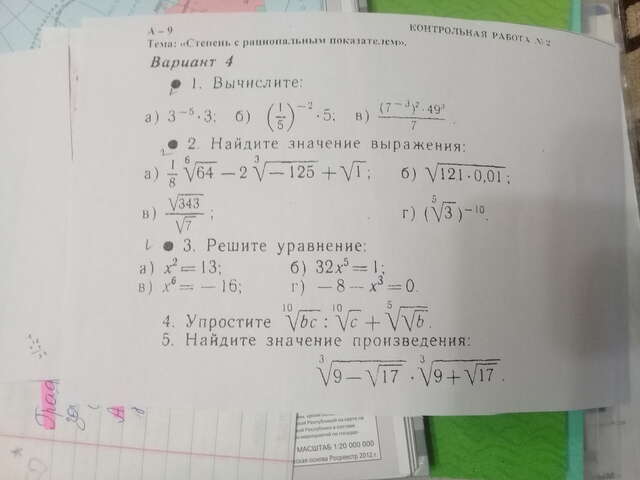 А – 9 КОНТРОЛЬНАЯ РАБОТА № 2
Тема: «Степень с рациональным показателем».
Вариант 4
1. Вычислите:
а) 3⁻⁵·3; б) (1/5)⁻²·5; в) (7⁻³)²·49³/7.
2. Найдите значение выражения:
а) 1/8 ⁶√64 – 2 ³√–125 + √1; б) √121·0,01;
в) √343/√7; г) (⁵√3)⁻¹⁰.
3. Решите уравнение:
а) x²=13; б) 32x⁵=1;
в) x⁶=–16; г) –8–x³=0.
4. Упростите ¹⁰√bc : ¹⁰√c + ⁵√√b.
5. Найдите значение произведения:
³√9–√17 · ³√9+√17.
МАСШТАБ 1:20 000 000